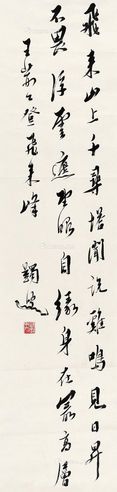 飛来山上千尋塔聞説雞鳴見日昇
不畏浮雲遮望眼自緣身在最高層
王荊公登飛来峰